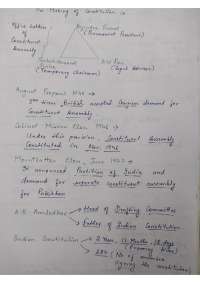 The Making of Constitution :-
Office Leaders of Constituent Assembly
Rajendra Prasad
(Permanent President)
Sachchidanand Sinha
(Temporary Chairman)
B.N Rau
(Legal Advisor)
August Proposal 1940 →
British accepted Congress demand for
Constituent Assembly
Cabinet Mission Plan 1946 →
Under this provision, Constituent Assembly
Constituted in Nov. 1946
Mountbatten Plan, June 1947 →
It announced Partition of India and
demand for separate constituent assembly
for Pakistan
Head of Drafting Committee
B.R. Ambedkar
Father of Indian Constitution
Indian Constitution
2 Year, 11 Month 18 days
284 (No of members
signing the constitution)